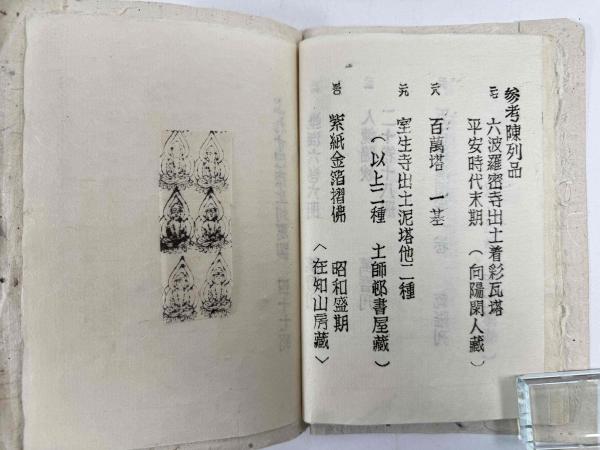 参考陳列品
六波羅密寺出土着彩瓦塔
平安時代末期 (向陽閑人藏)
百萬塔 一基
室生寺出土泥塔他二種
(以上二種 土師邨書屋藏)
紫紙金箔摺佛 昭和盛期
〈在知山房藏〉